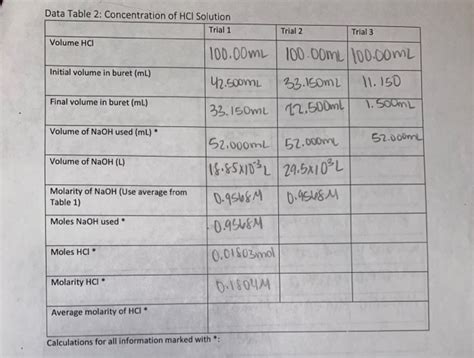 Data Table 2: Concentration of HCl Solution
Trial 1 Trial 2 Trial 3
Volume HCl 100.00mL 100.00mL 100.00mL
Initial volume in buret (mL) 42.500mL 33.150mL 11.150
Final volume in buret (mL) 33.150mL 22.500mL 1.500mL
Volume of NaOH used (mL) * 52.000mL 52.000mL 52.000mL
Volume of NaOH (L) 18.85x10-³L 29.5x10-³L
Molarity of NaOH (Use average from 0.9568M 0.9568M
Table 1)
Moles NaOH used * 0.9568M
Moles HCl * 0.01803mol
Molarity HCl * 0.1804M
Average molarity of HCl *
Calculations for all information marked with *: